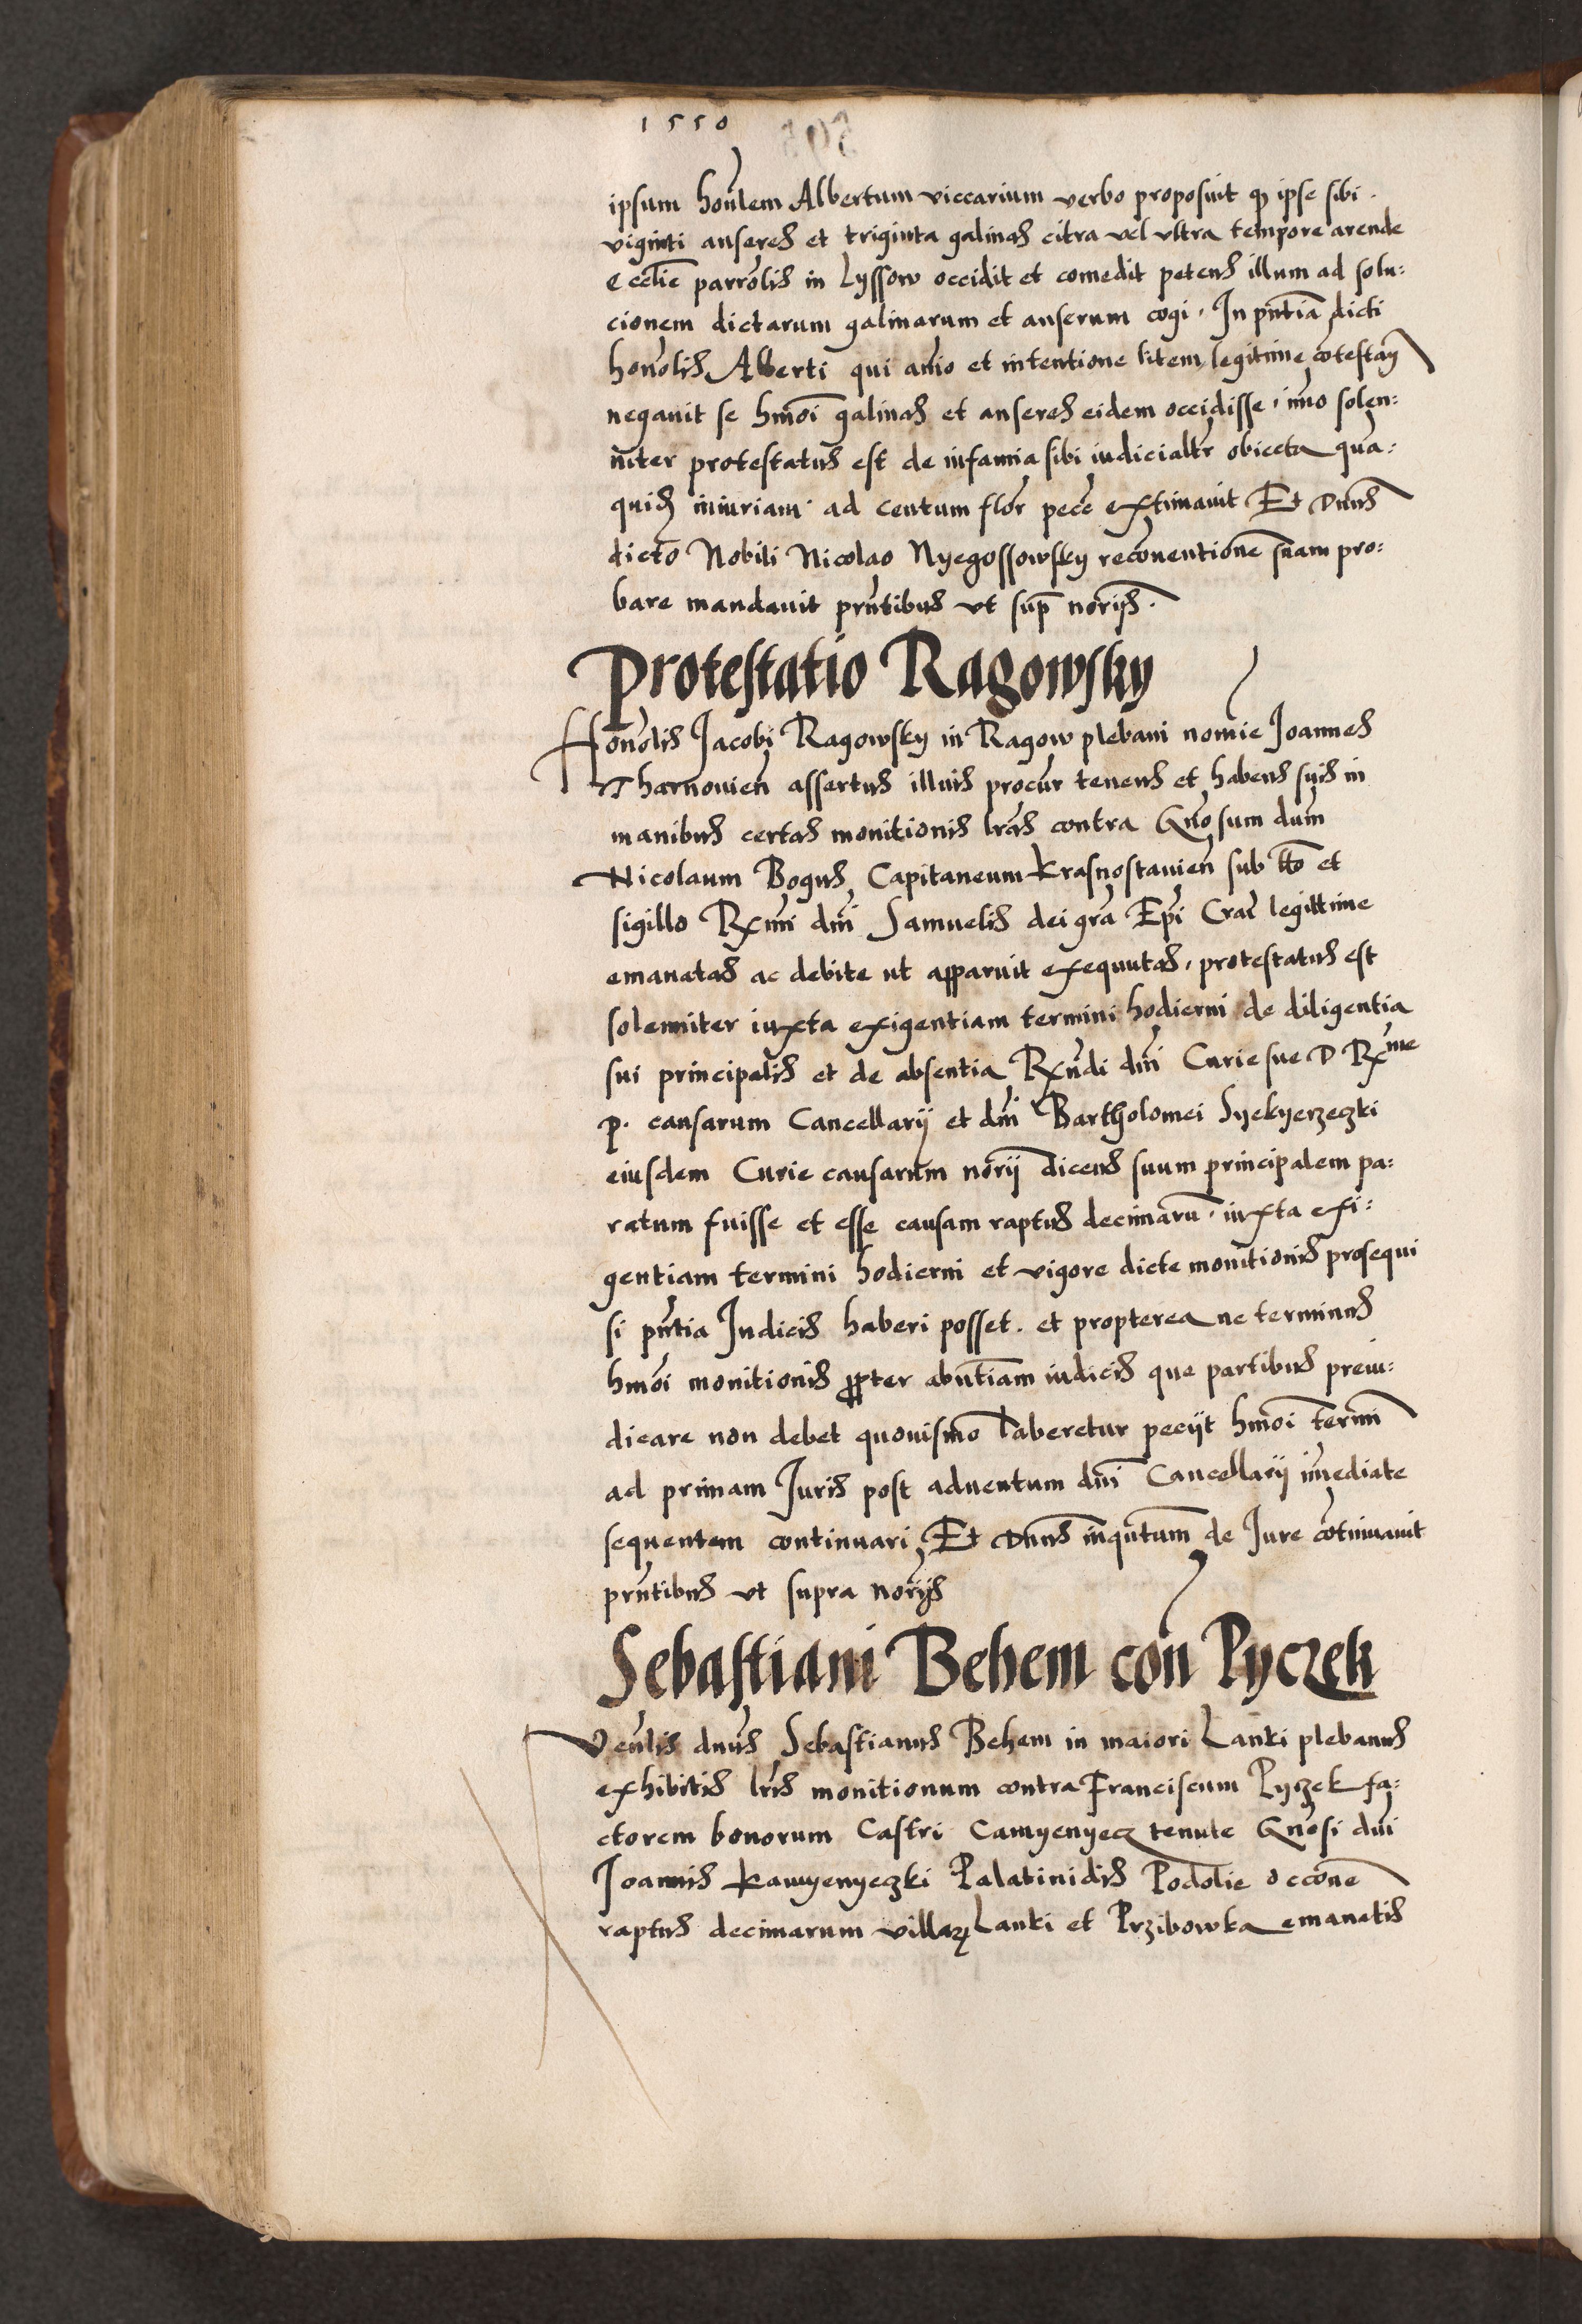 1550
ipsum honlem Albertum viccarium verbo proposuit qp ipse sibi
viginti anseres et triginta galinas citra vel vltra tempore arende
Ecclie parrolis in Lyssow occidit et comedit petens illum ad solu:
cionem dictarum galinarum et anserum cogi. In pntia dicti
honolis Alberti qui anio et intentione litem legitime cotestan
negauit se hmoi galinas et anseres eidem occidisse, imo solen:
niter protestatus est de infamia sibi iudicialtr obiecta qua:
quid iniuriam ad centum flor pece extimauit Et Dnus
dicto Nobili Nicolao Nyegossowsky reconuentione suam pro:
bare mandauit prntibus vt sup norijs.
Protestatio Ragowsky
Honolis Jacobi Ragowsky in Ragow plebani nomie Joannes
Tharnouien assertus illius procur tenens et habens suis in
manibus certas monitionis lras contra Gnosum dum
Nicolaum Bogus Capitaneum Krasnostauien sub tto et
sigillo Rxmi dni Samuelis dei gra Epi Crac legittime
emanatas ac debite ut apparuit exequutas, protestatus est
solenniter iuxta exigentiam termini hodierni de diligentia
sui principalis et de absentia Rxndi dni Curie sue D Rxme
p. causarum Cancellarij et dni Bartholomei Syekyerzeczki
eiusdem Curie causarum norij dicens suum principalem pa:
ratum fuisse et esse causam raptus decimaru, iuxta exi:
gentiam termini hodierni et vigore dicte monitionis prosequi
si pntia Judicis haberi posset. et propterea ne terminus
hmoi monitionis ppter abntiam iudicis que partibus preiu:
dicare non debet quouismo laberetur peciit hmoi termi
ad primam Juris post aduentum dni Cancellarij imediate
sequentem continuari, Et Dnus inqntum de Jure cotinuauit
prntibus vt supra norijs
Sebastiani Behem con Pyczek
Venlis dnus Sebastianus Behem in maiori Lanki plebanus
exhibitis lris monitionum contra Franciscum Pyczek fa:
ctorem bonorum Castri Camyenyecz tenute Gnosi dni
Joannis Kamyenyeczki Palatinidis Podolie occone
raptus decimarum villarz Lanki et Przibowka emanatis